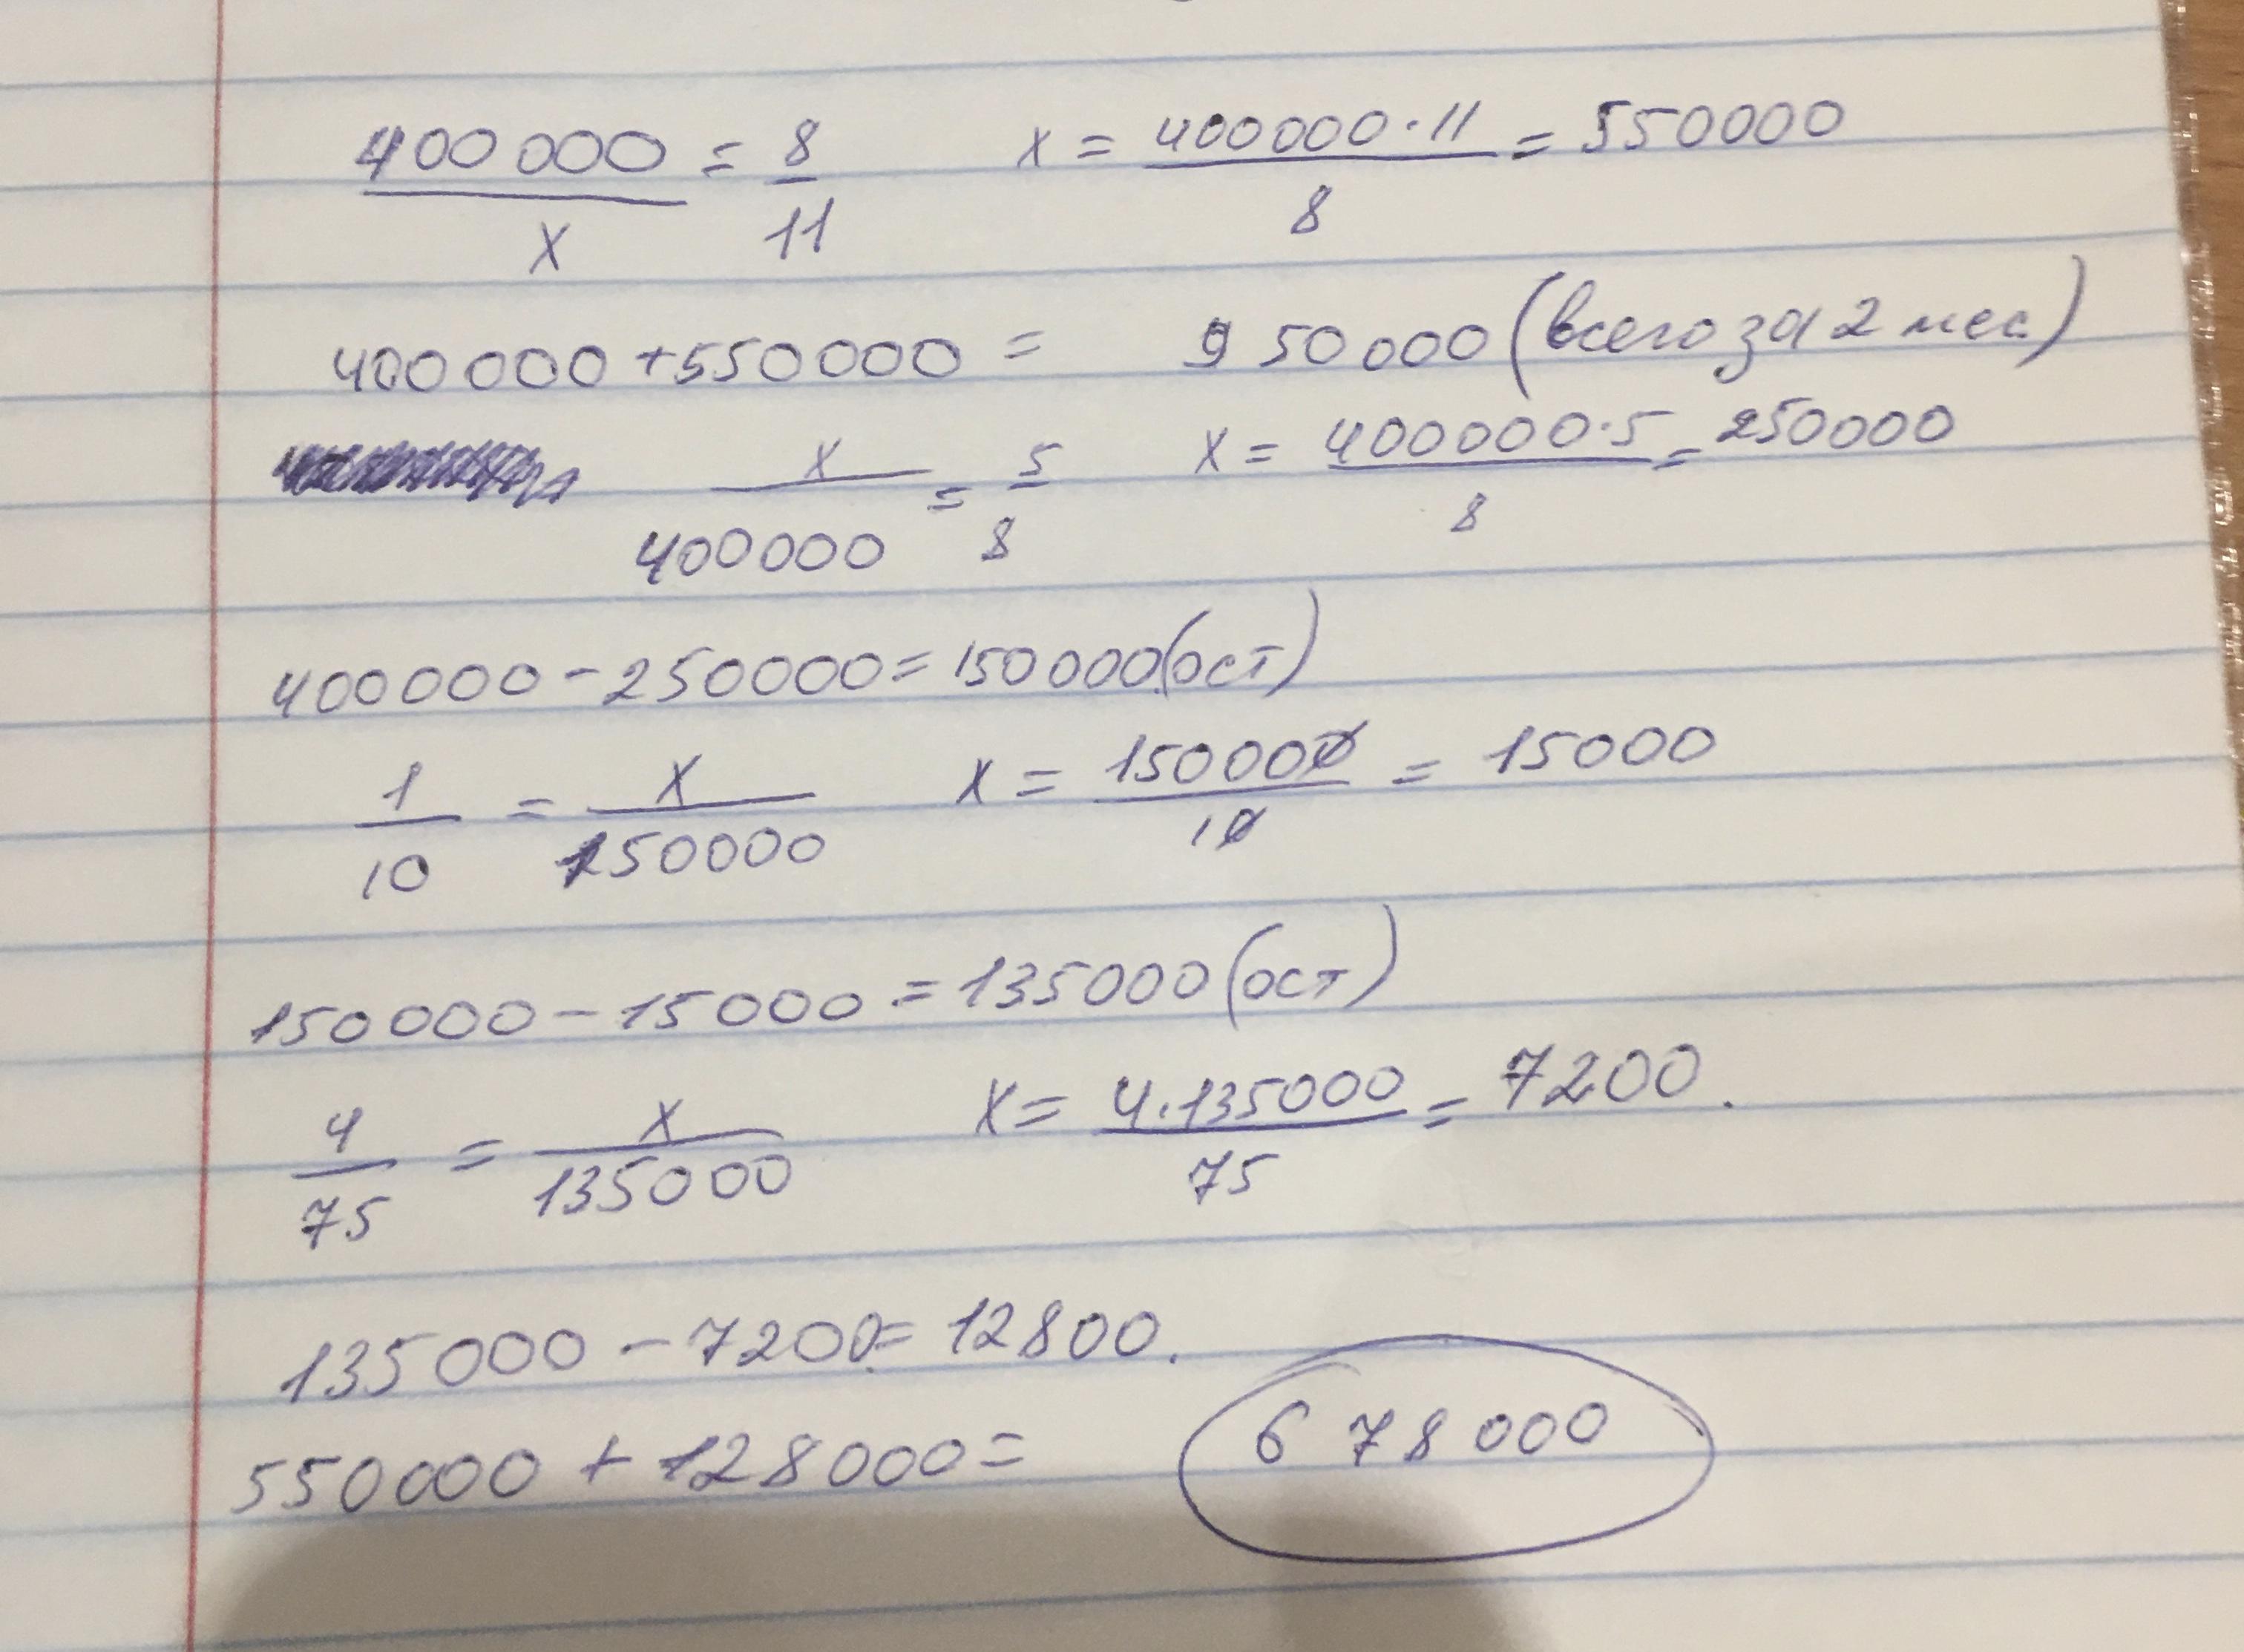 400 000 / x = 8/11   x = 400000·11 / 8 = 550000
400000 + 550000 = 950000 (всего за 2 мес)
x / 400000 = 5/8   x = 400000·5 / 8 = 250000
400000 - 250000 = 150000 (ост)
1/10 = x / 150000   x = 150000 / 10 = 15000
150000 - 15000 = 135000 (ост)
4/75 = x / 135000   x = 4·135000 / 75 = 7200.
135000 - 7200 = 12800.
550000 + 128000 = 678000